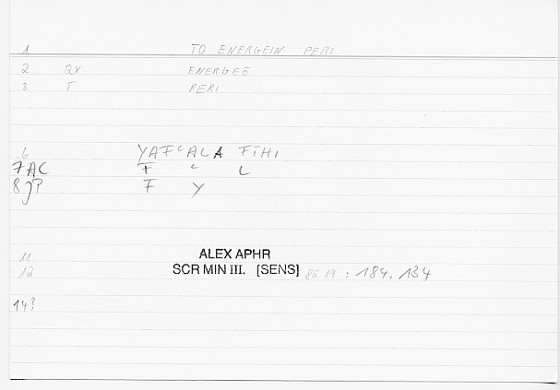 1 TO ENERGEIN PERI
2 QX ENERGEŌ
3 T PERI
6 YAFʿALA FĪHI
7 AC F ʿ L
8 JP F Y
11 ALEX APHR
12 SCR MIN III. [SENS] 85 19 : 184, 134
14?